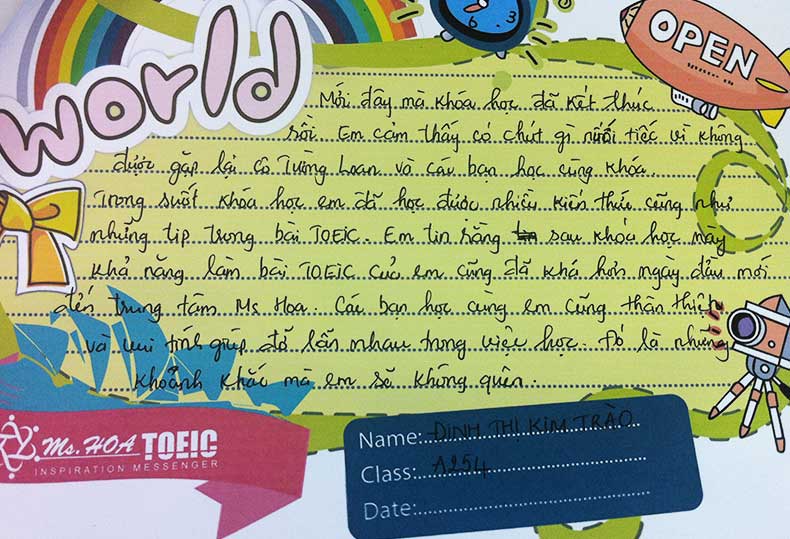 world
6 3
OPEN
Mới đây mà khóa học đã kết thúc
rồi. Em cảm thấy có chút gì nuối tiếc vì không
được gặp lại cô Tường Loan và các bạn học cùng khóa.
Trong suốt khóa học em đã học được nhiều kiến thức cũng như
những tip trong bài TOEIC. Em tin rằng sau khóa học này
khả năng làm bài TOEIC của em cũng đã khá hơn ngày đầu mới
đến trung tâm Ms Hoa. Các bạn học cùng em cũng thân thiện
và vui tính giúp đỡ lẫn nhau trong việc học. Đó là những
khoảnh khắc mà em sẽ không quên.
Ms. HOA TOEIC
INSPIRATION MESSENGER
Name: ĐINH THỊ KIM TRÀO
Class: A254
Date: